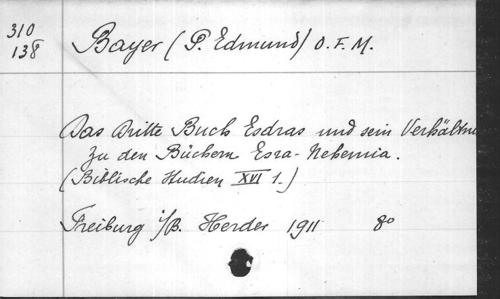 310
138
Bayer (P. Edmund) O.F.M.
Das Dritte Buch Esdras und sein Verhältni
zu den Büchern Esra-Nehemia.
(Biblische Studien XVI 1.)
Freiburg i/B. Herder 1911 8°